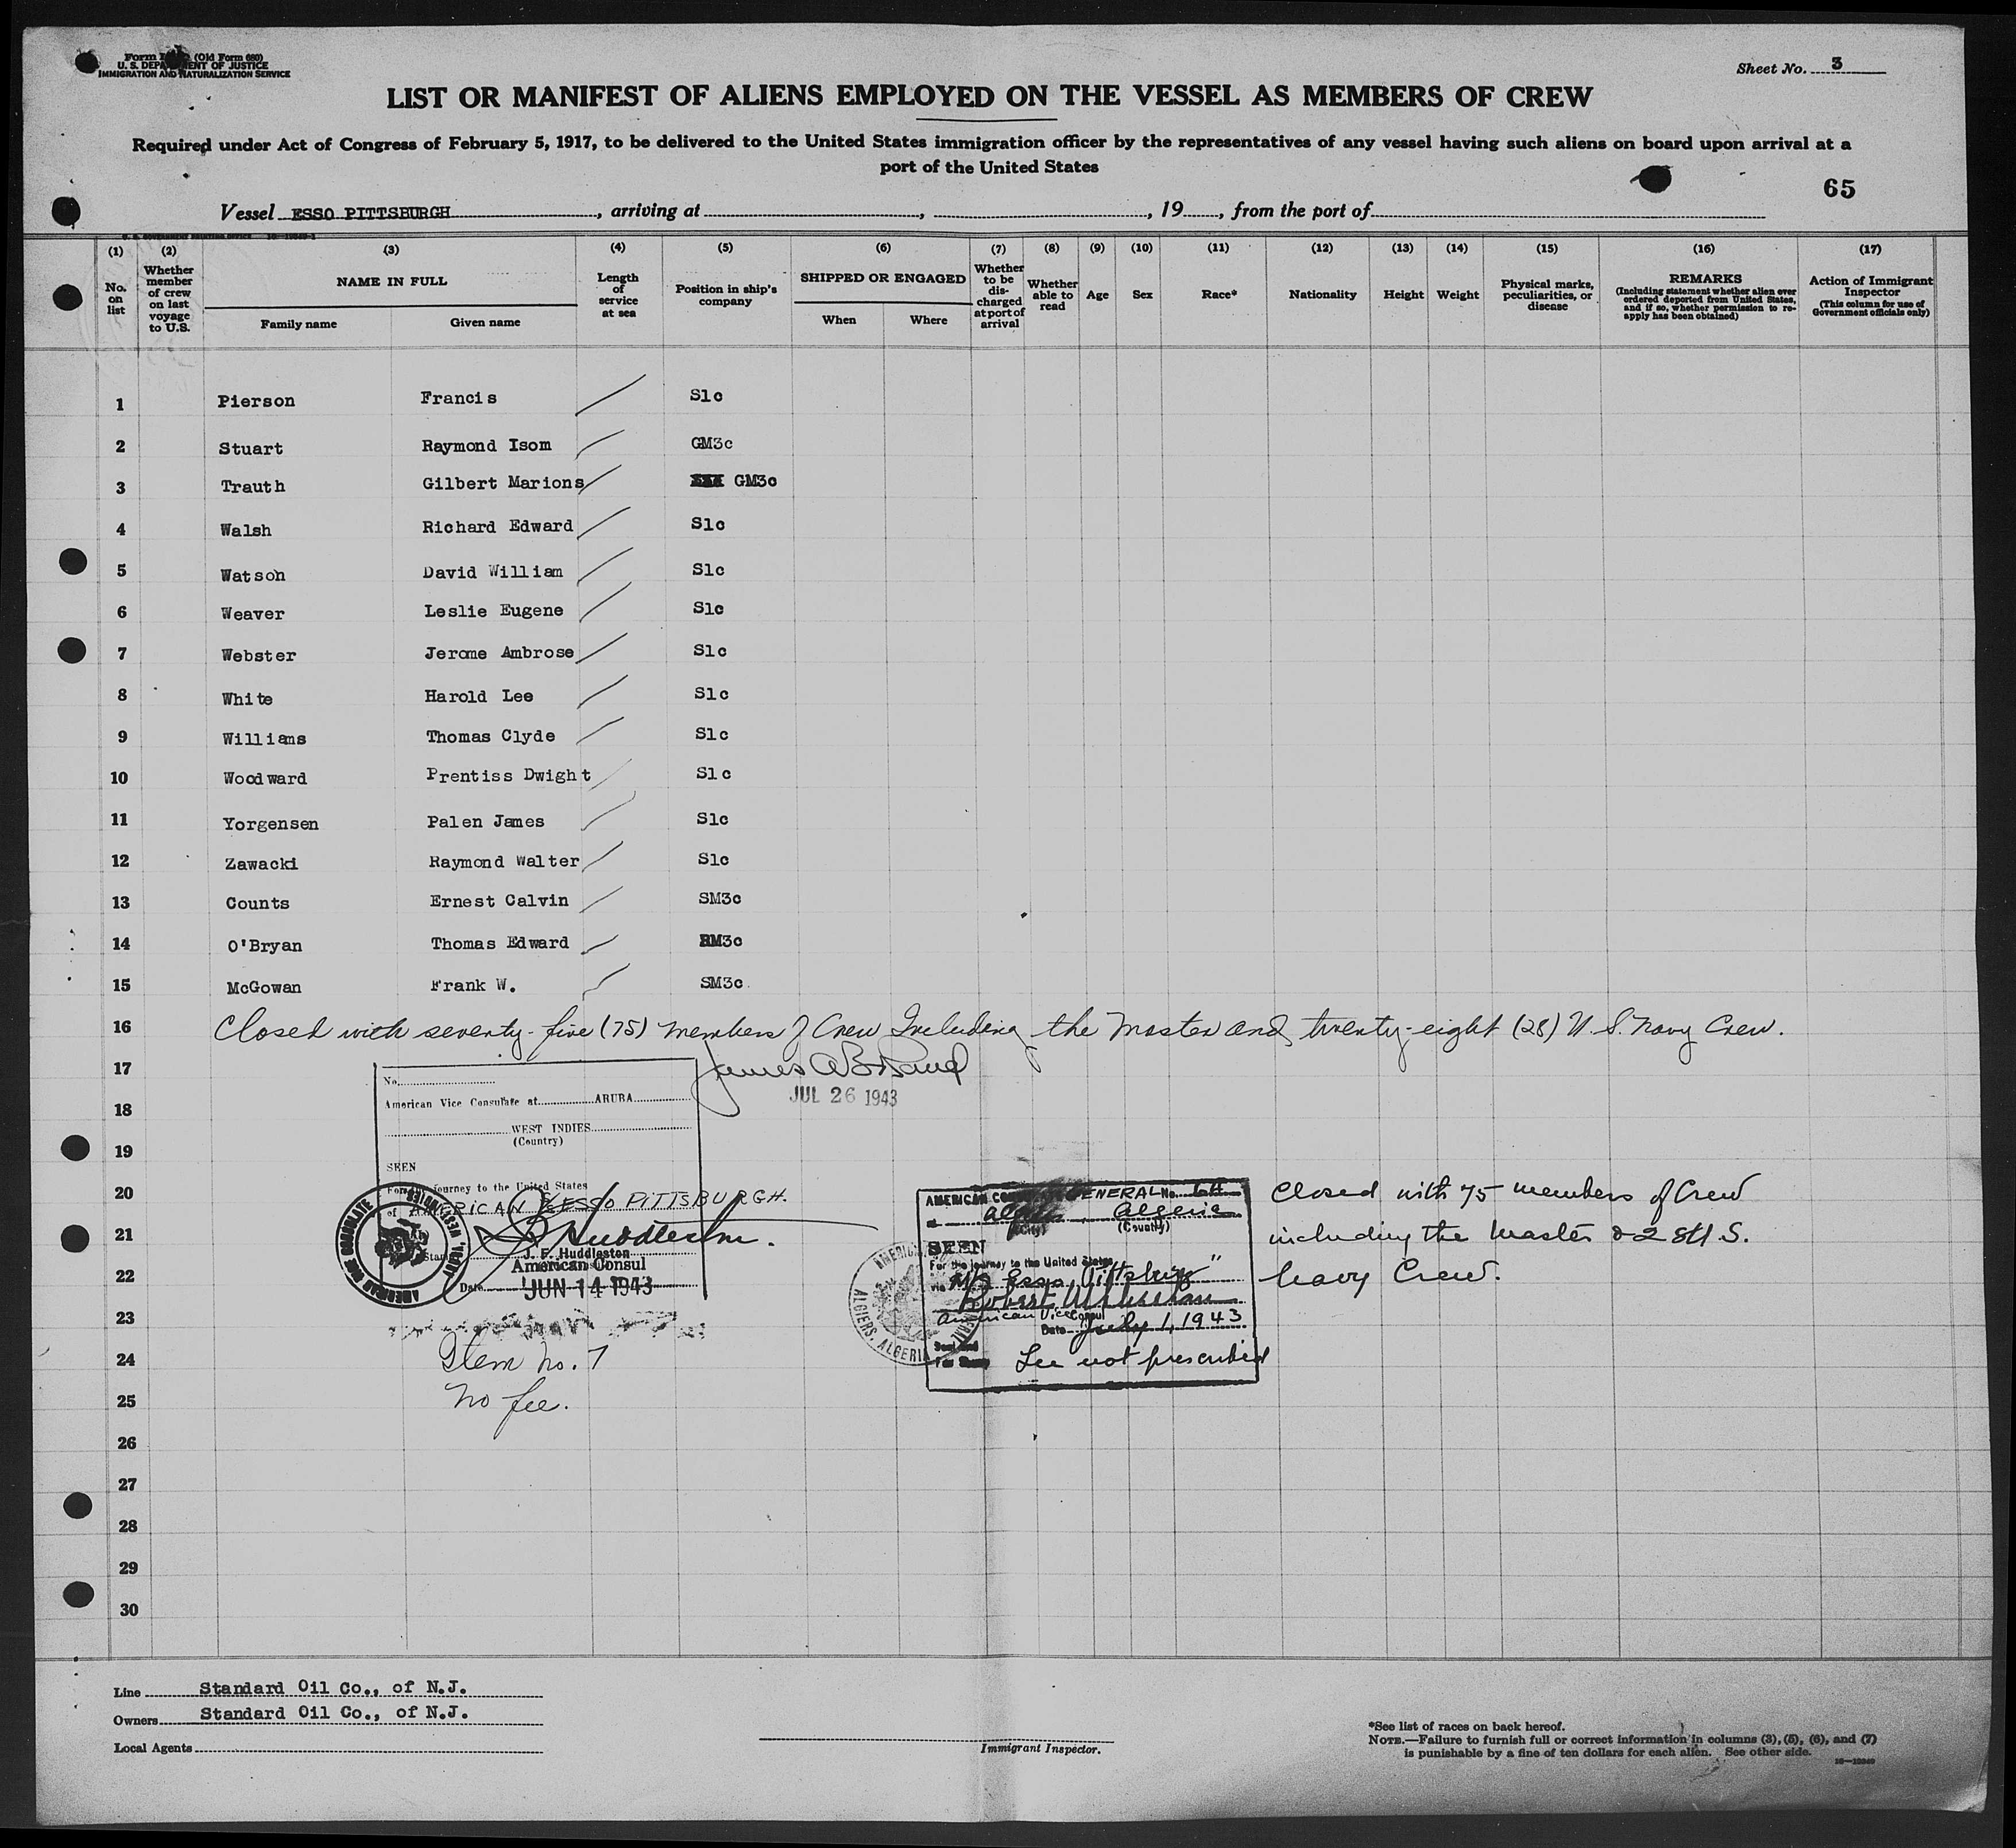 Form (Old Form 680)
U. S. DEPARTMENT OF JUSTICE
IMMIGRATION AND NATURALIZATION SERVICE
Sheet No. 3
LIST OR MANIFEST OF ALIENS EMPLOYED ON THE VESSEL AS MEMBERS OF CREW
Required under Act of Congress of February 5, 1917, to be delivered to the United States immigration officer by the representatives of any vessel having such aliens on board upon arrival at a
port of the United States
65
Vessel ESSO PITTSBURGH, arriving at , , 19 , from the port of
(1) No. on list
(2) Whether member of crew on last voyage to U.S.
(3) NAME IN FULL
Family name Given name
(4) Length of service at sea
(5) Position in ship's company
(6) SHIPPED OR ENGAGED
When Where
(7) Whether to be discharged at port of arrival
(8) Whether able to read
(9) Age
(10) Sex
(11) Race*
(12) Nationality
(13) Height
(14) Weight
(15) Physical marks, peculiarities, or disease
(16) REMARKS
(Including statement whether alien ever ordered deported from United States, and if so, whether permission to re-apply has been obtained)
(17) Action of Immigrant Inspector
(This column for use of Government officials only)
1 Pierson Francis S1c
2 Stuart Raymond Isom GM3c
3 Trauth Gilbert Marions GM3c
4 Walsh Richard Edward S1c
5 Watson David William S1c
6 Weaver Leslie Eugene S1c
7 Webster Jerome Ambrose S1c
8 White Harold Lee S1c
9 Williams Thomas Clyde S1c
10 Woodward Prentiss Dwight S1c
11 Yorgensen Palen James S1c
12 Zawacki Raymond Walter S1c
13 Counts Ernest Calvin SM3c
14 O'Bryan Thomas Edward RM3c
15 McGowan Frank W. SM3c
16 Closed with seventy-five (75) members of Crew Including the Master and twenty-eight (28) U.S. Navy Crew.
17
JUL 26 1943
18
19
20
21
22
23
24
25
26
27
28
29
30
No.
American Vice Consulate at ARUBA
WEST INDIES
(Country)
SEEN
For the journey to the United States
AMERICAN ESSO PITTSBURGH.
J. F. Huddleston
J. F. Huddleston
American Consul
Date JUN 14 1943
Item No. 7
No fee.
AMERICAN CONSULATE GENERAL No.
at Algiers, Algeria
(City) (Country)
SEEN
For the journey to the United States
via M/S Esso Pittsburg"
Robert
American Vice Consul
Date July 1, 1943
Fee not prescribed
ALGIERS, ALGERIA
Closed with 75 members of Crew
including the Master & 28 U.S.
Navy Crew.
Line Standard Oil Co., of N.J.
Owners Standard Oil Co., of N.J.
Local Agents
Immigrant Inspector.
*See list of races on back hereof.
NOTE.—Failure to furnish full or correct information in columns (3), (5), (6), and (7)
is punishable by a fine of ten dollars for each alien. See other side.